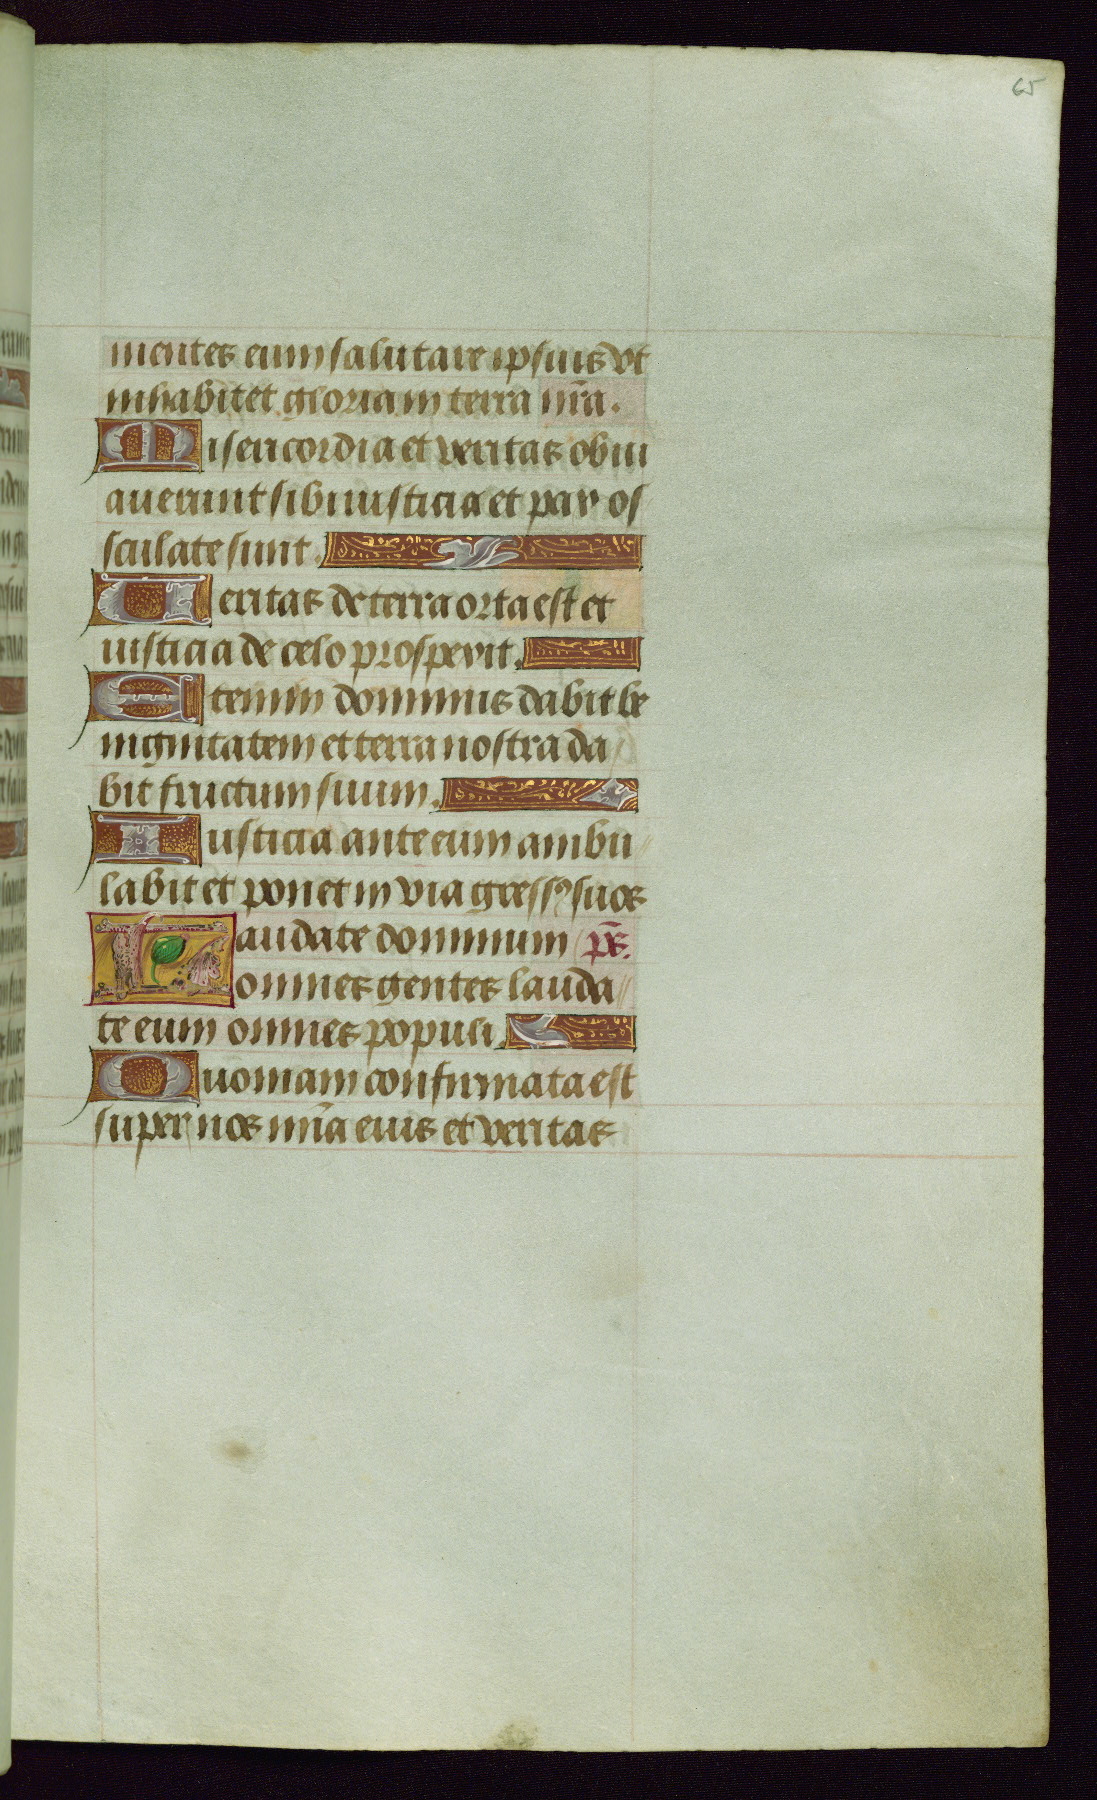 65
mentes eum salutare ipsius vt
inhabitet gloria in terra nr̄a.
Misericordia et veritas obui
auerunt sibi iusticia et pax os
sculate sunt.
Veritas de terra orta est et
iusticia de celo prospexit.
Etenim dominus dabit be
nignitatem et terra nostra da
bit fructum suum.
Iusticia ante eum ambu
labit et ponet in via gressꝯ suos
Laudate dominum p̄s.
omnes gentes lauda
te eum omnes populi
Quoniam confirmata est
super nos mīa eius et veritas